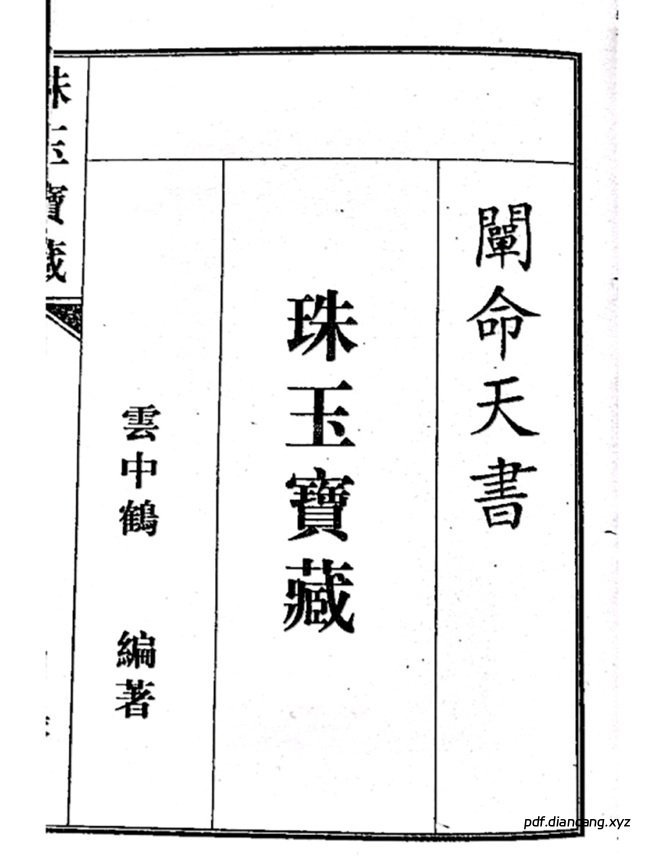 闡命天書
珠玉寶藏
雲中鶴 編著
珠玉寶藏
pdf.diancang.xyz